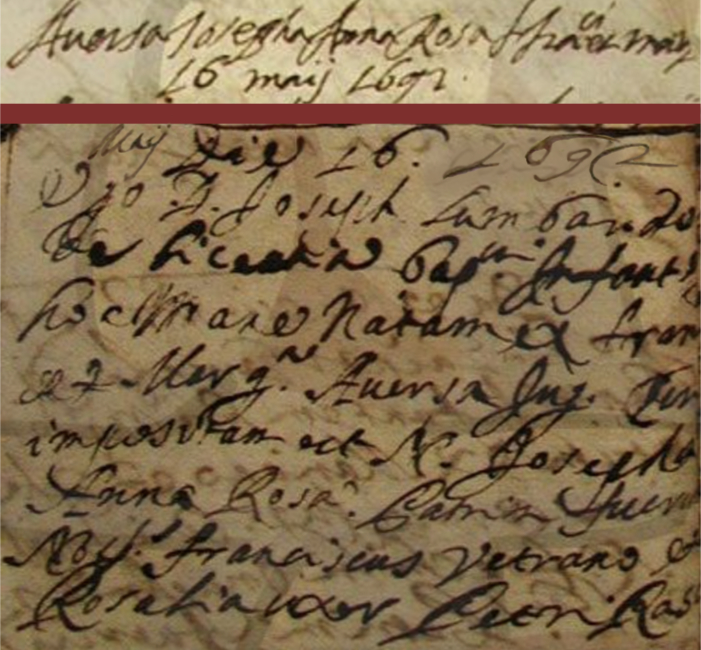 Auersa Josepha Anna Rosa
16 maij 1692.
Maij Die 16. 1692
Ego D. Joseph Lumbardo
De licentia bap.vi Infant
hoc Mane Natam ex fran
et Marg. Auersa Jug. Cui
impositum est N. Josepha
Anna Rosa. Patrini fuer
Not. franciscus Vetrano &
Rosalia uxor Petri